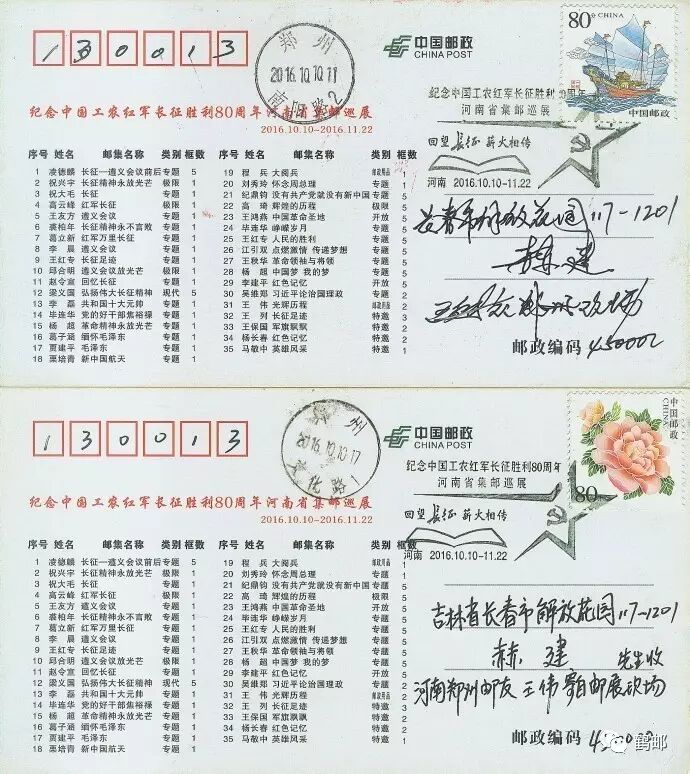 130013
郑州
2016.10.10.11
中国邮政
CHINA POST
80分 CHINA
中国邮政
纪念中国工农红军长征胜利80周年河南省集邮巡展
2016.10.10-2016.11.22
纪念中国工农红军长征胜利80周年
河南省集邮巡展
回望长征 薪火相传
河南 2016.10.10-11.22
序号 姓名 邮集名称 类别 框数
1 凌德麟 长征—遵义会议前后 专题 5
2 祝兴宇 长征精神永放光芒 极限 1
3 祝大毛 长征 专题 1
4 高云峰 红军长征 极限 1
5 王友方 遵义会议 专题 1
6 袭柏年 长征精神永不言败 专题 1
7 葛立新 红军万里长征 专题 1
8 李晨 遵义会议 专题 1
9 王红专 长征足迹 专题 1
10 邱合明 遵义会议放光芒 极限 1
11 赵令宣 回忆长征 专题 1
12 梁义国 弘扬伟大长征精神 现代 5
13 李磊 共和国十大元帅 专题 1
14 毕连华 党的好干部焦裕禄 专题 1
15 杨超 革命精神放光芒 专题 1
16 葛子涵 缅怀毛泽东 专题 1
17 贾建平 毛泽东 专题 1
18 栗培青 新中国航天 专题 1
序号 姓名 邮集名称 类别 框数
19 程兵 大阅兵
20 刘秀玲 怀念周总理 专题
21 纪鼎钧 没有共产党就没有新中国 专题
22 高琦 辉煌的历程 极限
23 王鸿燕 中国革命圣地 开放
24 毕连华 峥嵘岁月 专题
25 王红专 人民的胜利 专题
26 江引双 点燃激情 传递梦想 专题
27 王秋华 革命领袖与将领 专题
28 杨超 中国梦 我的梦 专题
29 李建平 红色记忆 开放
30 吴维郑 习近平论治国理政 专题
31 王伟 光辉历程
32 王列 长征足迹 特邀
33 王保国 军旗飘飘 特邀
34 杨长春 红色记忆 特邀
35 马敏中 英雄风采 特邀
长春市解放花园117-1201
建
邮政编码 450002
130013
郑州
2016.10.10.17
文化路1
中国邮政
CHINA POST
中国邮政
CHINA
80分
纪念中国工农红军长征胜利80周年河南省集邮巡展
2016.10.10-2016.11.22
纪念中国工农红军长征胜利80周年
河南省集邮巡展
回望长征 薪火相传
河南 2016.10.10-11.22
序号 姓名 邮集名称 类别 框数
1 凌德麟 长征—遵义会议前后 专题 5
2 祝兴宇 长征精神永放光芒 极限 1
3 祝大毛 长征 专题 1
4 高云峰 红军长征 极限 1
5 王友方 遵义会议 专题 1
6 袭柏年 长征精神永不言败 专题 1
7 葛立新 红军万里长征 专题 1
8 李晨 遵义会议 专题 1
9 王红专 长征足迹 专题 1
10 邱合明 遵义会议放光芒 极限 1
11 赵令宣 回忆长征 专题 1
12 梁义国 弘扬伟大长征精神 现代 5
13 李磊 共和国十大元帅 专题 1
14 毕连华 党的好干部焦裕禄 专题 1
15 杨超 革命精神放光芒 专题 1
16 葛子涵 缅怀毛泽东 专题 1
17 贾建平 毛泽东 专题 1
18 栗培青 新中国航天 专题 1
序号 姓名 邮集名称 类别 框数
19 程兵 大阅兵
20 刘秀玲 怀念周总理 专题
21 纪鼎钧 没有共产党就没有新中国 专题
22 高琦 辉煌的历程 极限
23 王鸿燕 中国革命圣地 开放
24 毕连华 峥嵘岁月 专题
25 王红专 人民的胜利 专题
26 江引双 点燃激情 传递梦想 专题
27 王秋华 革命领袖与将领 专题
28 杨超 中国梦 我的梦 专题
29 李建平 红色记忆 开放
30 吴维郑 习近平论治国理政 专题
31 王伟 光辉历程
32 王列 长征足迹 特邀
33 王保国 军旗飘飘 特邀
34 杨长春 红色记忆 特邀
35 马敏中 英雄风采 特邀
吉林省长春市解放花园117-1201
赫建 先生收
河南郑州邮友王伟寄自邮展现场
邮政编码
鹤邮